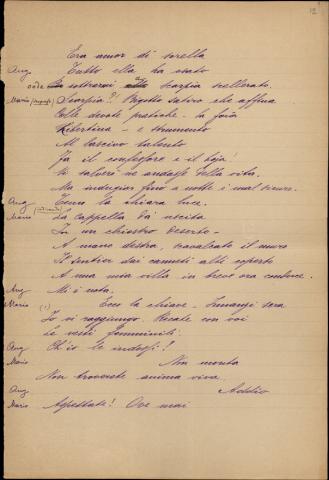 12
Era amor di sorella
Ang Tutto ella ha osato
onde sottrarmi a Scarpia scellerato.
Mario Scarpia?! Bigotto satiro che affina
Colle devote pratiche la foia
Libertina - e strumento
Al lascivo talento
Fa il confessore e il boja!
Vi salverò ne andasse della vita.
Ma indugiar fino a notte è mal sicuro.
Ang Temo la chiara luce.
Mario La Cappella dà uscita
In un chiostro deserto -
A mano destra, scavalcato il muro
Il sentier dai canneti all' aperto
A una mia villa in breve ora conduce.
Ang M'è nota.
Mario Ecco la chiave - Innanzi sera
Io vi raggiungo. Recate con voi
Le vesti femminili.
Ang Ch'io le indossi?
Mario Non monta
Non troverete anima viva.
Ang Addio
Mario Aspettate! Ove mai